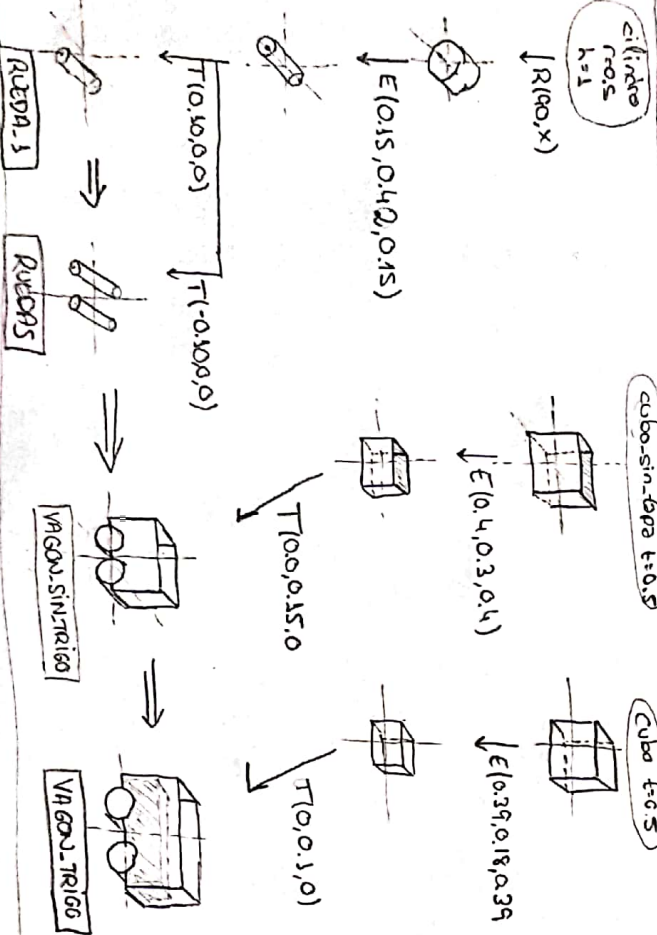 cilindro
r=0.5
h=1
R(90,x)
E(0.15,0.42,0.15)
T(0.10,0,0)
T(-0.10,0,0)
RUEDA_1
RUEDAS
cubo-sin-tapa t=0.5
E(0.4,0.3,0.4)
T(0.0,0.15,0
VAGON_SIN_TRIGO
Cubo t=0.5
E(0.39,0.18,0.39
T(0,0.1,0)
VAGON_TRIGO